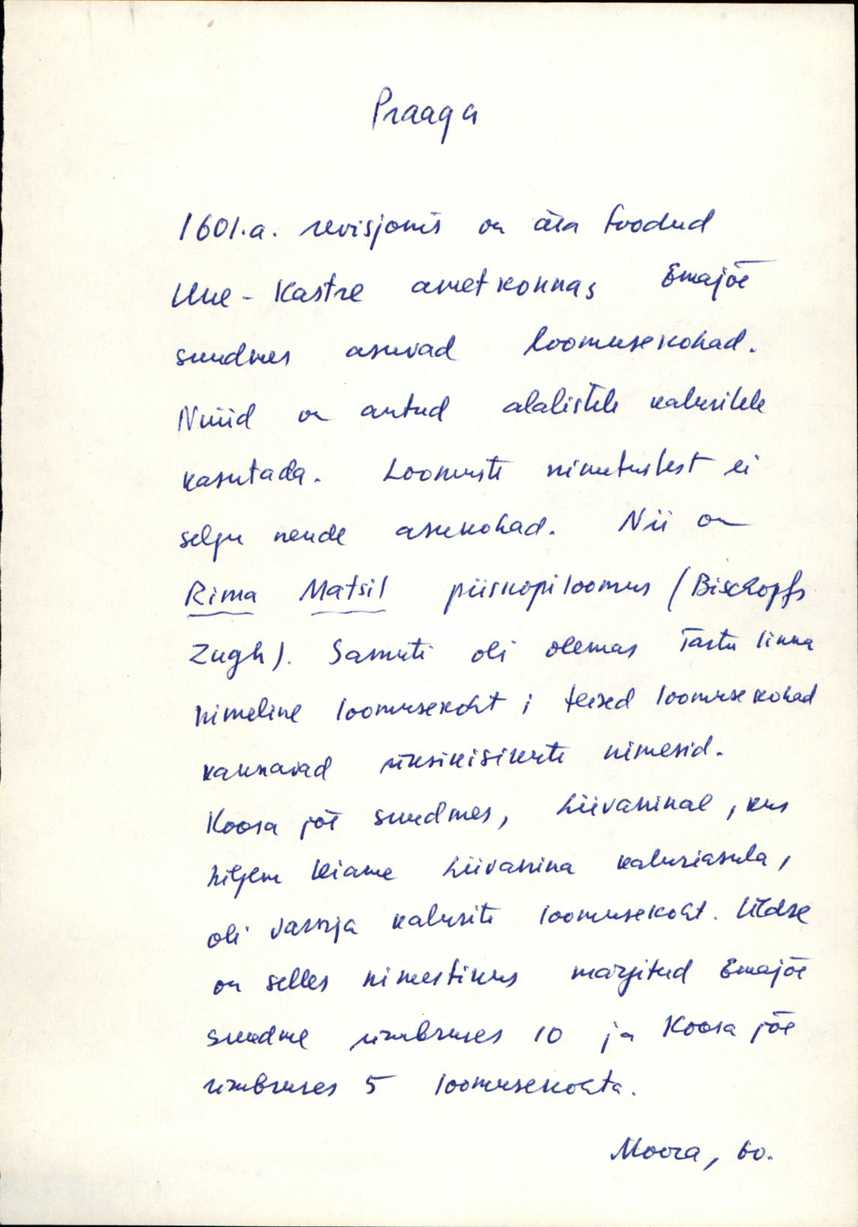 Praaga
1601.a. revisjonis on ära toodud
Uue-Kastre ametkonnas Emajõe
suudmes asuvad loomusekohad.
Nüüd on antud alalistele kaluritele
kasutada. Loomuste nimetustest ei
selgu nende asukohad. Nii on
Rima Matsil piiskopiloomus (Bischopfs
Zugh). Samuti oli olemas Tartu linna
nimeline loomusekoht; teised loomusekohad
kannavad üksikisikute nimesid.
Koosa jõe suudmes, Liivaninal, kus
hiljem leiame Liivanina kaluriasula,
oli Varnja kalurite loomusekoht. Üldse
on selles nimestikus märgitud Emajõe
suudme ümbruses 10 ja Koosa jõe
ümbruses 5 loomusekohta.
Moora, 60.